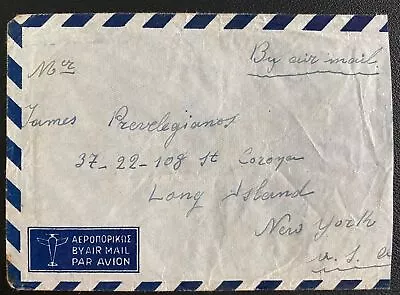 By air mail.
Mr
James Prevelegianos
37-22-108 st Coroya
Long Island
New York
U.S.A
ΑΕΡΟΠΟΡΙΚΩΣ
BY AIR MAIL
PAR AVION